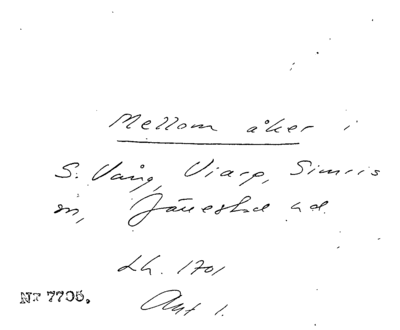 Mellom åker i
S. Vång, Viarp, Simris
sn, Järrestad hd.
Lh. 1701
Akt 1.
Nr 7705.